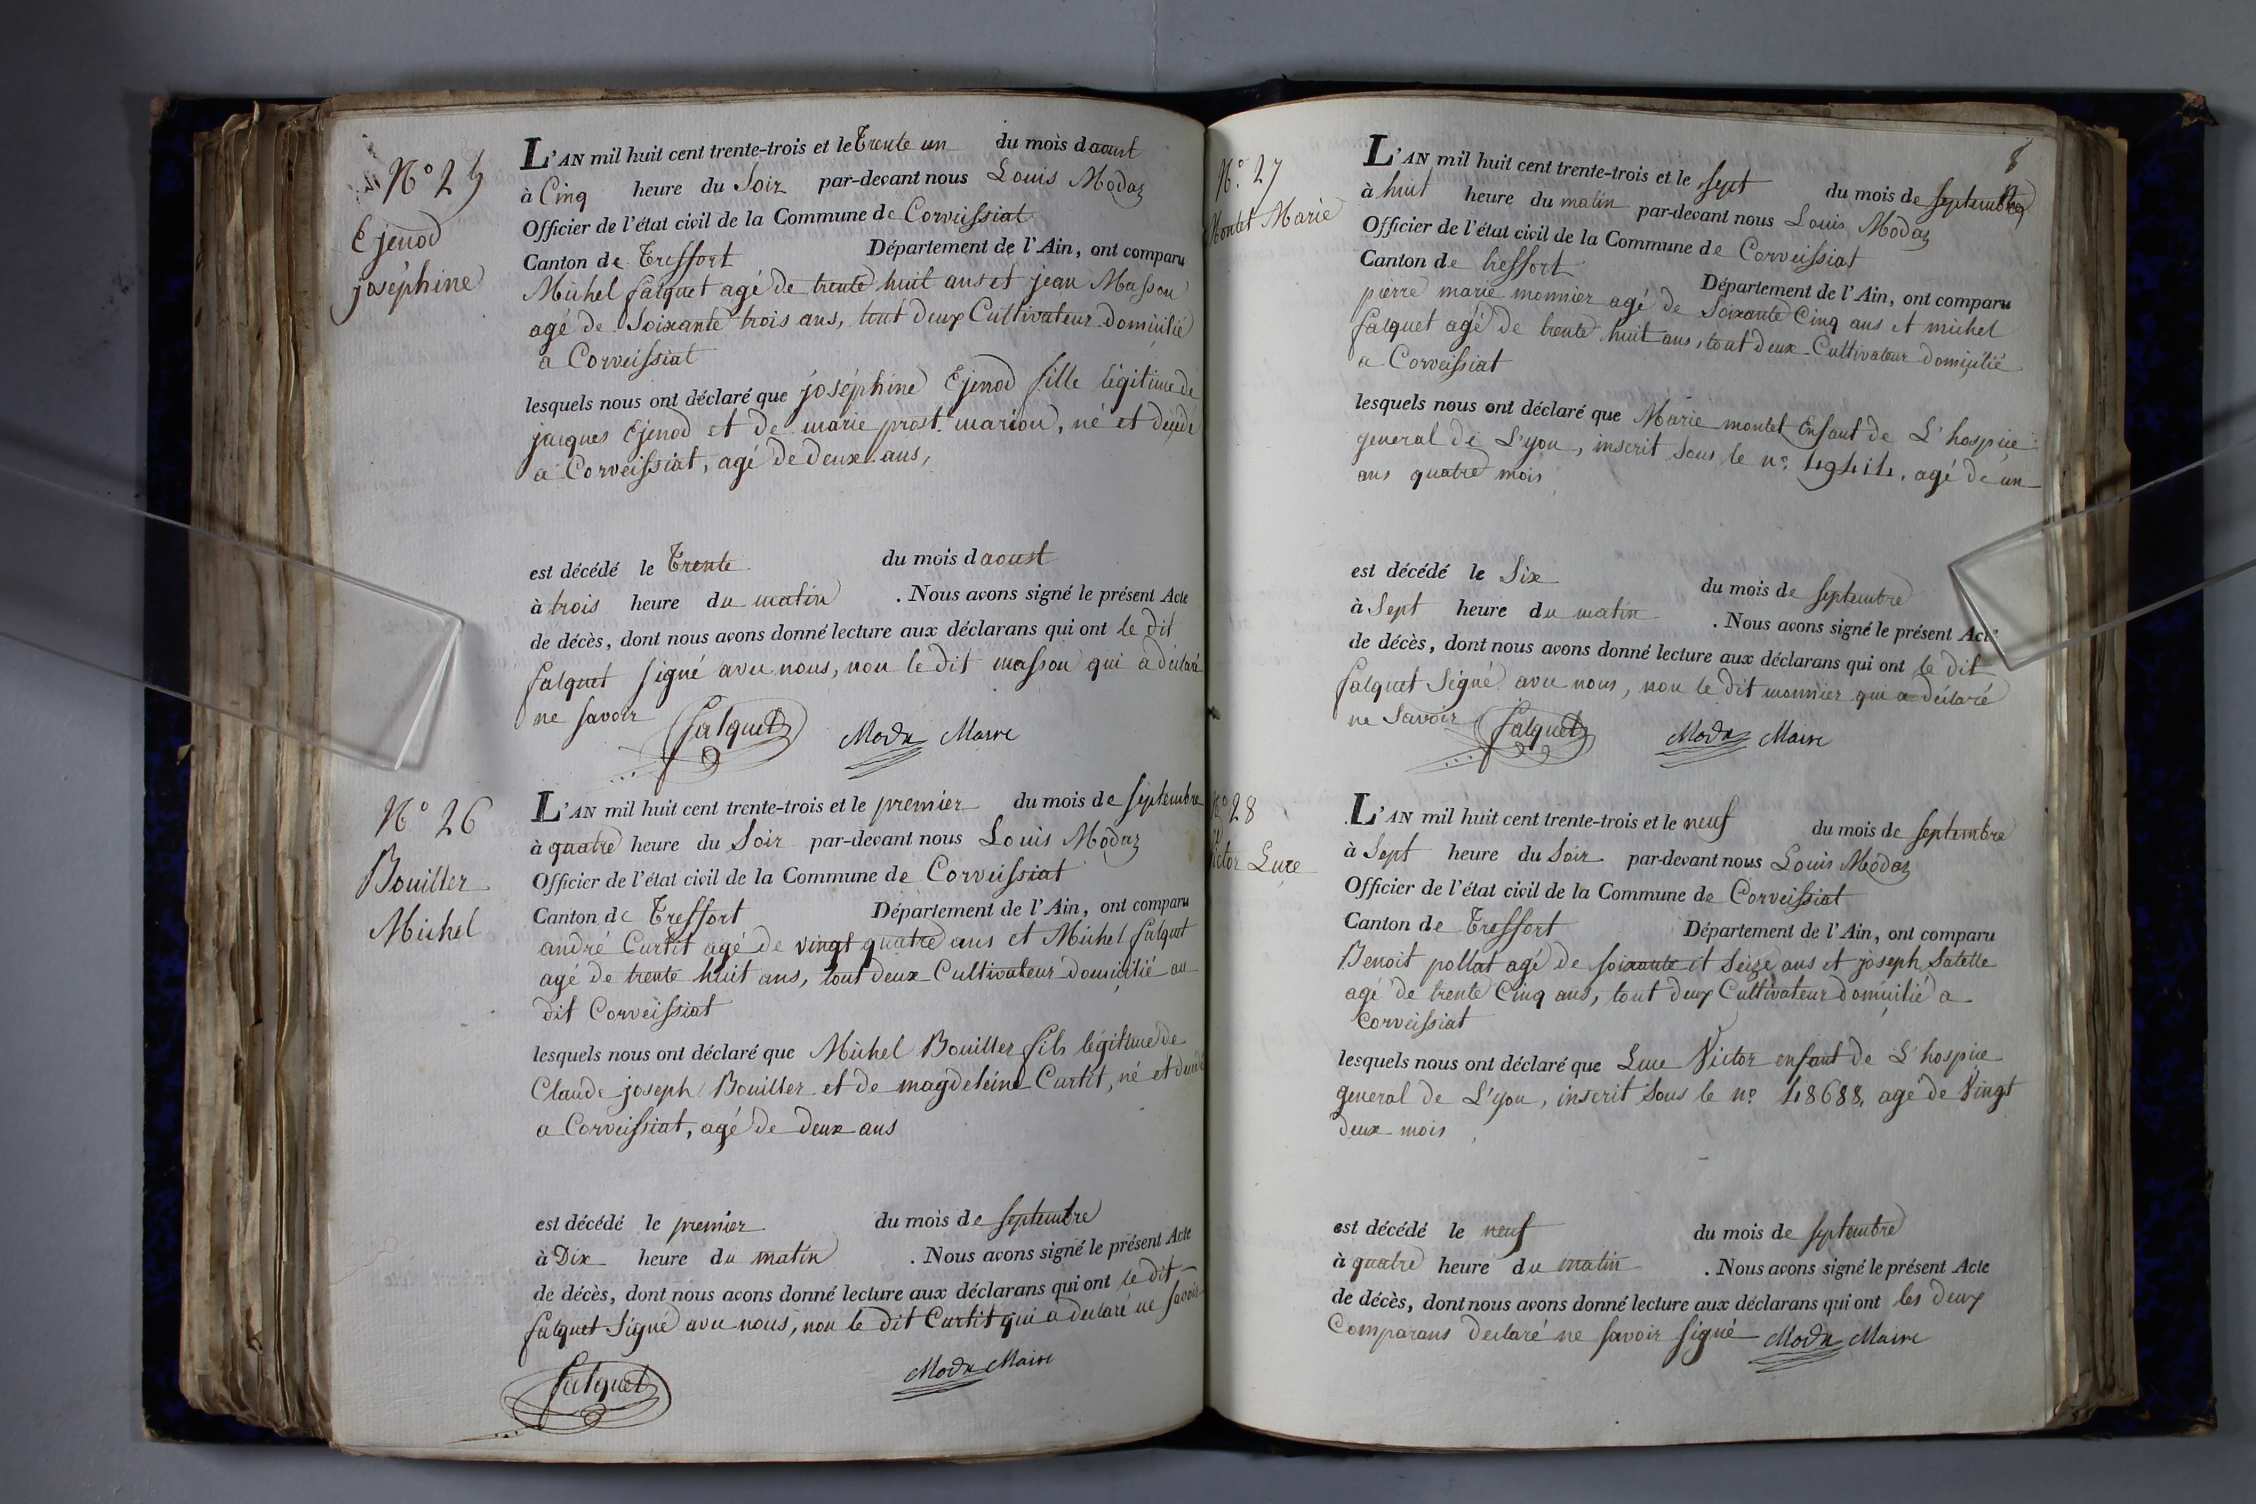 N° 25
Ejenod
joséphine
L'AN mil huit cent trente-trois et le Trente un du mois d'aoust
à Cinq heure du Soir par-devant nous Louis Modaz
Officier de l'état civil de la Commune de Corveissiat
Canton de Treffort Département de l'Ain, ont comparu
Michel falquet agé de trente huit ans et jean Masson
agé de Soixante trois ans, tout deux Cultivateur domicilié
a Corveissiat
lesquels nous ont déclaré que joséphine Ejenod fille légitime de
jacques Ejenod et de marie prost-marion, né et décédé
a Corveissiat, agé de deux ans,
est décédé le Trente du mois d aoust
à trois heure du matin . Nous avons signé le présent Acte
de décès, dont nous avons donné lecture aux déclarans qui ont le dit
falquet signé avec nous, non le dit masson qui a déclaré
ne savoir falquet Modaz Maire
N° 26
Bouiller
Michel
L'AN mil huit cent trente-trois et le premier du mois de septembre
à quatre heure du Soir par-devant nous Louis Modaz
Officier de l'état civil de la Commune de Corveissiat
Canton de Treffort Département de l'Ain, ont comparu
andré Curtit agé de vingt quatre ans et Michel falquet
agé de trente huit ans, tout deux Cultivateur domicilié au
dit Corveissiat
lesquels nous ont déclaré que Michel Bouiller fils légitime de
Claude joseph Bouiller et de magdeleine Curtit, né et décédé
a Corveissiat, agé de deux ans
est décédé le premier du mois de septembre
à Dix heure du matin . Nous avons signé le présent Acte
de décès, dont nous avons donné lecture aux déclarans qui ont le dit
falquet Signé avec nous, non le dit Curtit qui a declaré ne savoir
falquet Modaz Maire
8
N° 27
Montet Marie
L'AN mil huit cent trente-trois et le sept du mois de septembre
à huit heure du matin par-devant nous Louis Modaz
Officier de l'état civil de la Commune de Corveissiat
Canton de treffort Département de l'Ain, ont comparu
pierre marie monnier agé de Soixante Cinq ans et michel
falquet agé de trente huit ans, tout deux Cultivateur domicilié
a Corveissiat
lesquels nous ont déclaré que Marie montet Enfant de L'hospice
general de L'yon, inscrit Sous le n° 49414, agé de un
ans quatre mois
est décédé le Six du mois de septembre
à Sept heure du matin . Nous avons signé le présent Acte
de décès, dont nous avons donné lecture aux déclarans qui ont le dit
falquet Signé avec nous, non le dit monnier qui a déclaré
ne Savoir falquet Modaz Maire
N° 28
Victor Luce
L'AN mil huit cent trente-trois et le neuf du mois de septembre
à Sept heure du Soir par-devant nous Louis Modaz
Officier de l'état civil de la Commune de Corveissiat
Canton de Treffort Département de l'Ain, ont comparu
Benoit pollat agé de soixante et Seize ans et joseph Satelle
agé de trente Cinq ans, tout deux Cultivateur domicilié a
Corveissiat
lesquels nous ont déclaré que Luce Victor enfant de L'hospice
general de L'yon, inscrit Sous le n° 48688, agé de Vingt
deux mois
est décédé le neuf du mois de septembre
à quatre heure du matin . Nous avons signé le présent Acte
de décès, dont nous avons donné lecture aux déclarans qui ont les deux
Comparans declaré ne savoir signé Modaz Maire